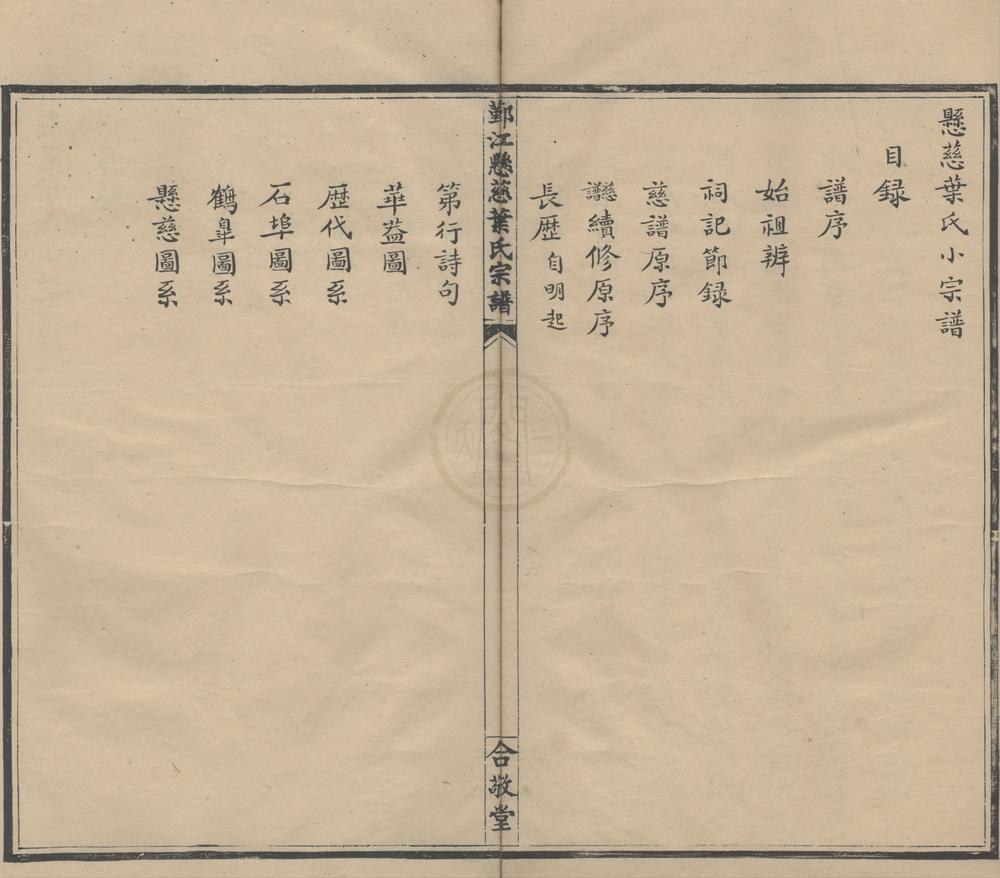 懸慈葉氏小宗譜
目録
譜序
始祖辨
祠記節録
慈譜原序
慈譜續修原序
長歴自明起
鄞江懸慈葉氏宗譜
合敬堂
第行詩句
華葢圖
歴代圖系
石埠圖系
鶴臯圖系
懸慈圖系